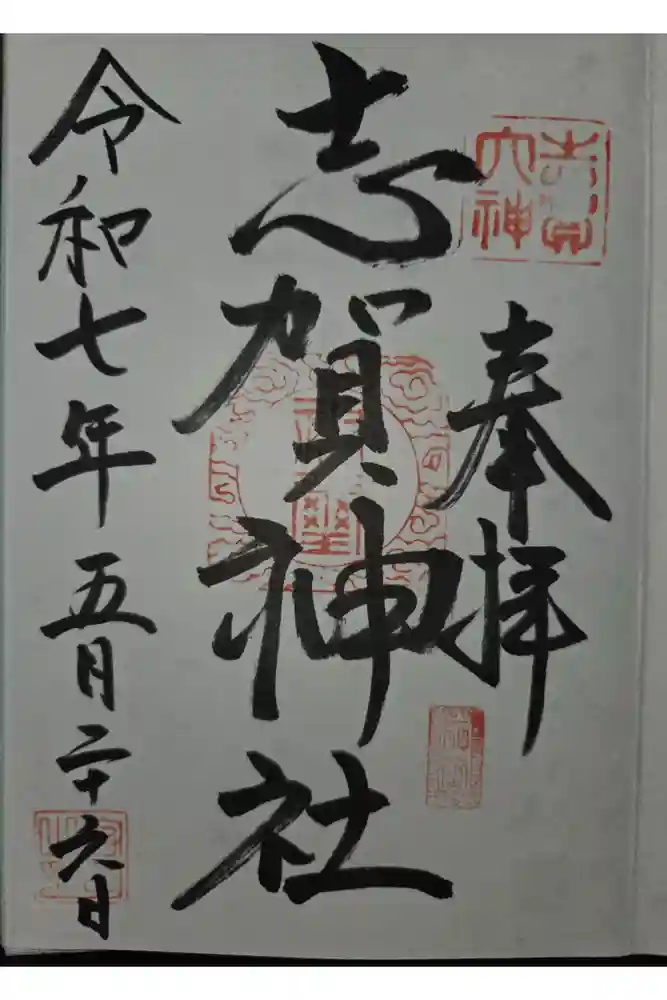 奉拝
志賀神社
令和七年五月二十六日
志賀
大神